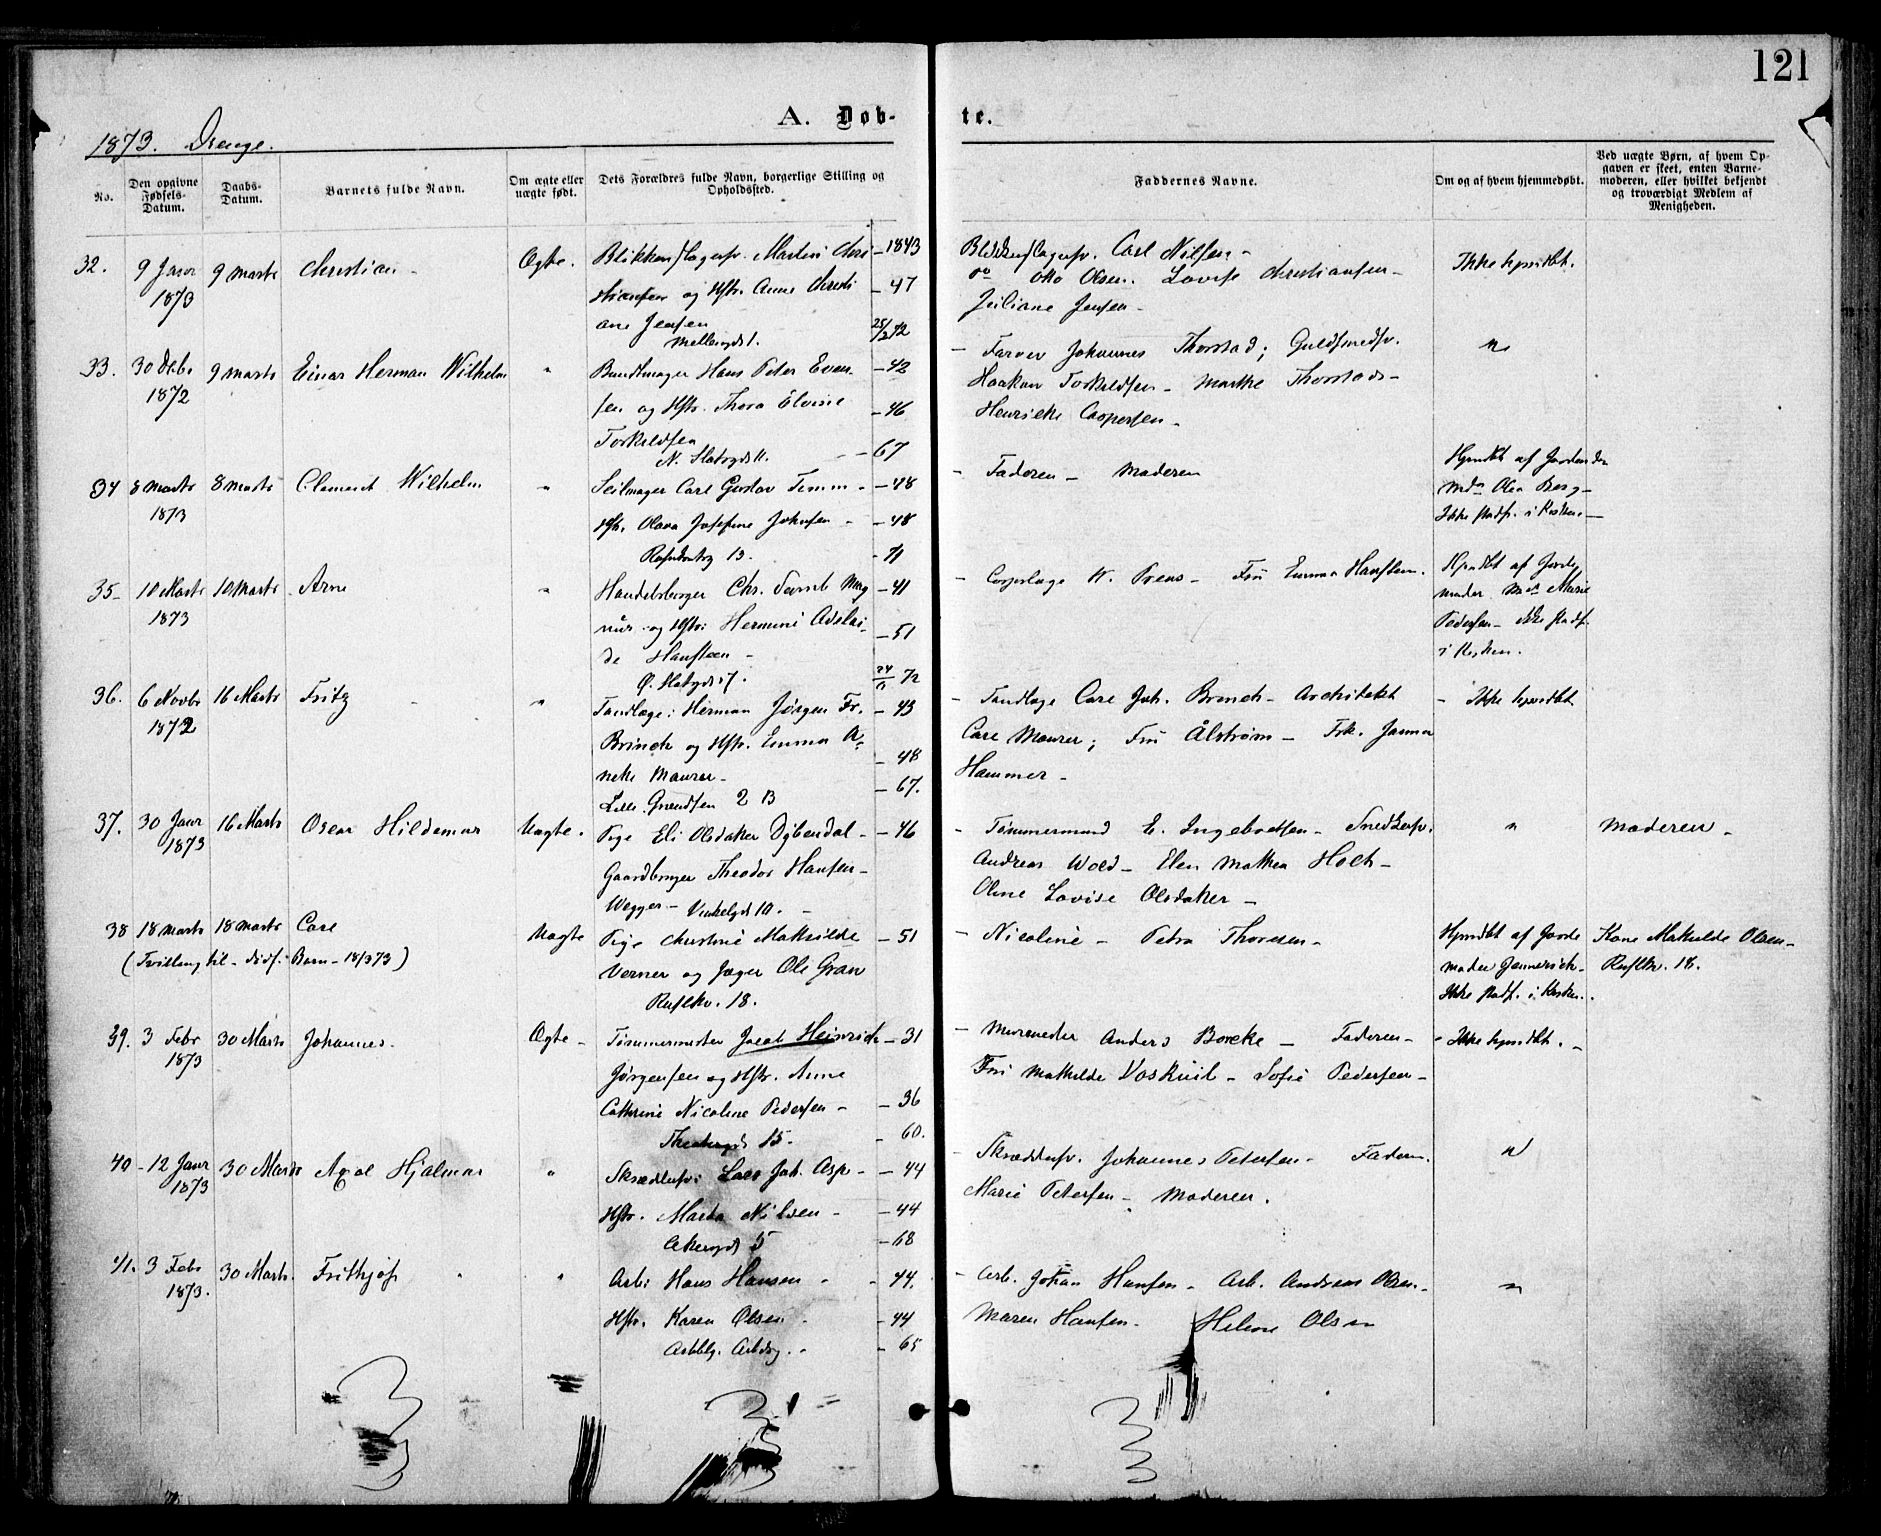 121
A. Døb-
te.
1873. Drenge.
No.
Den opgivne Fødsels-Datum.
Daabs-Datum.
Barnets fulde Navn.
Om ægte eller uægte født.
Dets Forældres fulde Navn, borgerlige Stilling og Opholdssted.
Faddernes Navne.
Om og af hvem hjemmedøbt.
Ved uægte Børn, af hvem Op-
gaven er skeet, enten Barne-
moderen, eller hvilket bekjendt
og troværdigt Medlem af
Menigheden.
32. 9 Janr 1873 9 Marts Christian - Ægte.
Blikkenslagersv. Martin Chri - 1843
stiansen og Hstr. Anne Christi - 47
ane Jensen 25/2 72
Mellemgd 1.
Blikkenslagersv. Carl Nilsen -
do Otto Olsen. Lovise Christiansen -
Juliane Jensen -
Ikke hjmdbt.
33. 30 Decbr 1872 9 Marts Einar Herman Wilhelm "
Bundtmager Hans Peter Evan- - 42
sen og Hstr. Thora Elvine - 46
Torkildsen
N. Slotsgd 11. - 67
- Farver Johannes Thorstad; Guldsmedsv.
Haakon Torkildsen - Marthe Thorstads -
Henrikke Caspersen -
"
34 8 Marts 1873 8 Marts Clement Wilhelm "
Seilmager Carl Gustav Timm - - 48
Hstr. Olava Josefine Johnsen - - 48
13. - 71
- Faderen - Moderen
Hjmdbt af Jordmder
Mdm Olea Berg -
Ikke stadf. i Kirken. -
35 - 10 Marts 1873 10 Marts Arne "
Handelsborger Chr. Mag - 41
nus og Hstr: Hermine Adelai- - 51
de Hansteen -
Ø. Slotsgd 17. 24/11 72
- Corpslæge W. Preus - Fru Emma Hansteen.
Hjmdbt af Jorde
moder Mdm Marie
Pedersen - ikke stadf.
i Kirken.
36. 6 Novbr 1872 16 Marts Fritz - "
Tandlæge: Herman Jørgen Fr. - 43
Brinch og Hstr. Emma A- - 48
neke Maurer - - 67.
Lille Grændsen 2 B
- Tandlæge Carl Joh. Brinch - Architekt
Carl Maurer; Fru Ålstrøm - Frk. Janna
Hammer -
- Ikke hjmdbt
37. 30 Janr 1873 16 Marts Oscar Hildemar Uægte.
Pige Eli Olsdatter Dybendal - - 46
Gaardbruger Theodor Hansen -
Wegger - Vinkelgd 10. -
- Tømmermand E. Ingebretsen - Snedkersv.
Andreas Wold - Elen Mathea Hoch -
Oline Lovise Olsdatter -
"
Moderen -
38 18 Marts 18 Marts Carl Uægte
(Tvilling til - dødf. Barn - 18/3 73)
Pige Christine Mathilde - 51
Verner og Jæger Ole Gran
Ruslkv. 18.
- Nicoline - Petra Thoresen -
Hjmdbt af Jorde
moder Jennerich -
Ikke stadf. i Kirken.
Kone Mathilde Olsen -
Ruslkv. 18.
39. 3 Febr 1873 30 Marts Johannes. Ægte -
Tømmermester Jacob Heinrich - 31
Jørgensen og Hstr. Anne
Cathrine Nicoline Pedersen - - 36
Theatergd 15. - 60.
- Murmester Anders Borcke - Faderen -
Fru Mathilde Voskuil - Sofie Pedersen -
- Ikke hjmdbt. -
40 - 12 Janr 1873 30 Marts Axel Hjalmar "
Skræddersv: Lars Joh. Asp - - 44
Hstr. Marta Nilsen - - 44
Akersgd 5 - 68
- Skræddersv. Johannes Petersen - Faderen.
Marie Petersen - Moderen.
"
41. 3 Febr 1873. 30 Marts. Frithjof "
Arb: Hans Hansen - - 44.
Hstr. Karen Olsen - - 44
Arbblg. Arbdsg. - - 65
- Arb. Johan Hansen - Arb. Andreas Olsen -
Maren Hansen - Helene Olsen
"